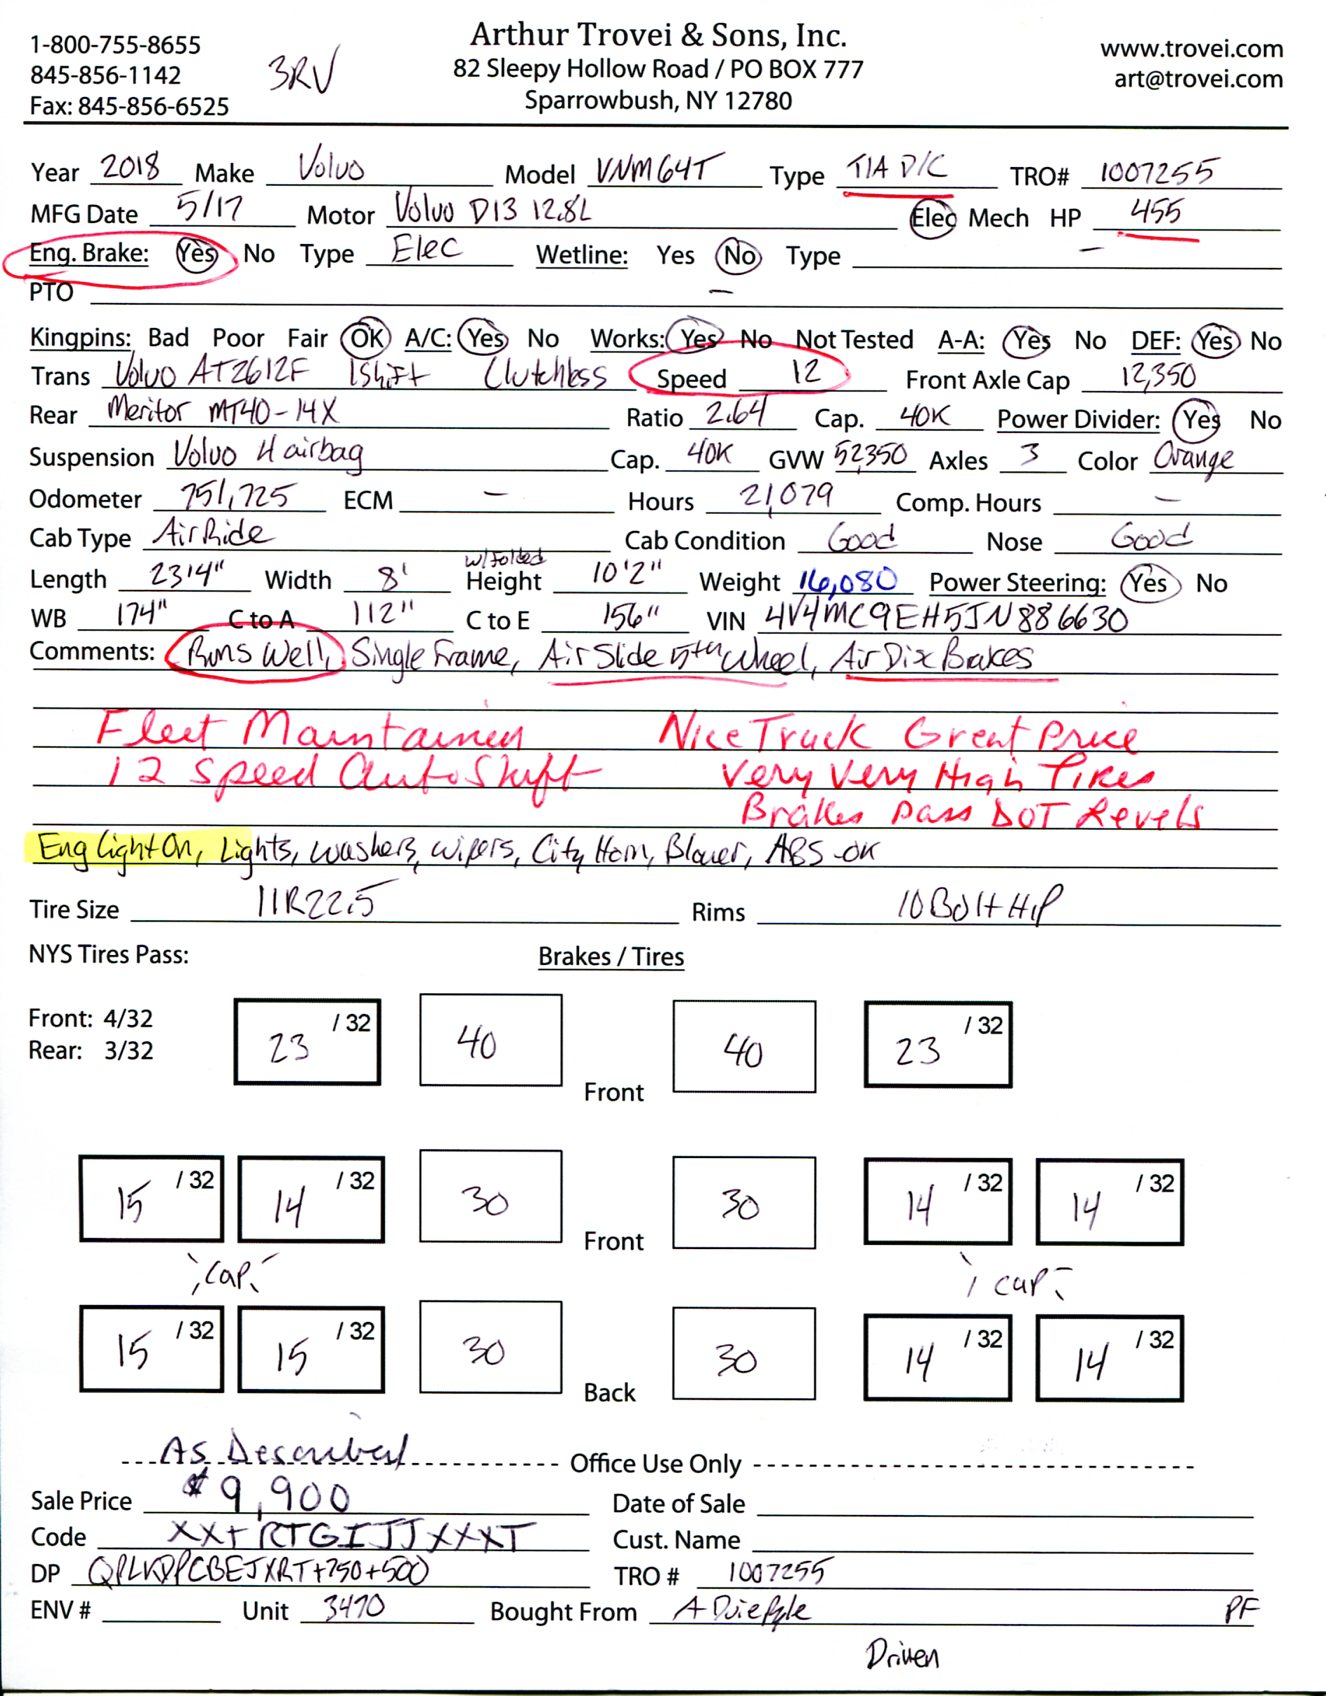 Arthur Trovei & Sons, Inc.
82 Sleepy Hollow Road / PO BOX 777
Sparrowbush, NY 12780
1-800-755-8655
845-856-1142
Fax: 845-856-6525
3RV
www.trovei.com
art@trovei.com
Year 2018 Make Volvo Model VNM64T Type T/A D/C TRO# 1007255
MFG Date 5/17 Motor Volvo D13 12.8L Elec Mech HP 455
Eng. Brake: Yes No Type Elec Wetline: Yes No Type —
PTO —
Kingpins: Bad Poor Fair OK A/C: Yes No Works: Yes No Not Tested A-A: Yes No DEF: Yes No
Trans Volvo AT2612F IShift Clutchless Speed 12 Front Axle Cap 12,350
Rear Meritor MT40-14X Ratio 2.64 Cap. 40K Power Divider: Yes No
Suspension Volvo 4 airbag Cap. 40K GVW 52,350 Axles 3 Color Orange
Odometer 751,725 ECM — Hours 21,079 Comp. Hours —
Cab Type AirRide Cab Condition Good Nose Good
w/Folded
Length 23'4" Width 8' Height 10'2" Weight 16,080 Power Steering: Yes No
WB 174" C to A 112" C to E 156" VIN 4V4MC9EH5JN886630
Comments: Runs Well, Single Frame, Air Slide 5th Wheel, Air Disc Brakes
Fleet Maintained Nice Truck Great Price
12 Speed AutoShift Very Very High Tires
Brakes Pass DOT Levels
Eng Light On, Lights, Washers, Wipers, City Horn, Blower, ABS-OK
Tire Size 11R22.5 Rims 10 Bolt H/P
NYS Tires Pass: Brakes / Tires
Front: 4/32
Rear: 3/32
23 /32 40 Front 40 23 /32
15 /32 14 /32 30 Front 30 14 /32 14 /32
cap cap
15 /32 15 /32 30 Back 30 14 /32 14 /32
As Described Office Use Only
Sale Price $9,900 Date of Sale
Code XX+RTGIJJXXXT Cust. Name
DP +750+500 TRO # 1007255
ENV # Unit 3470 Bought From PF
Driven